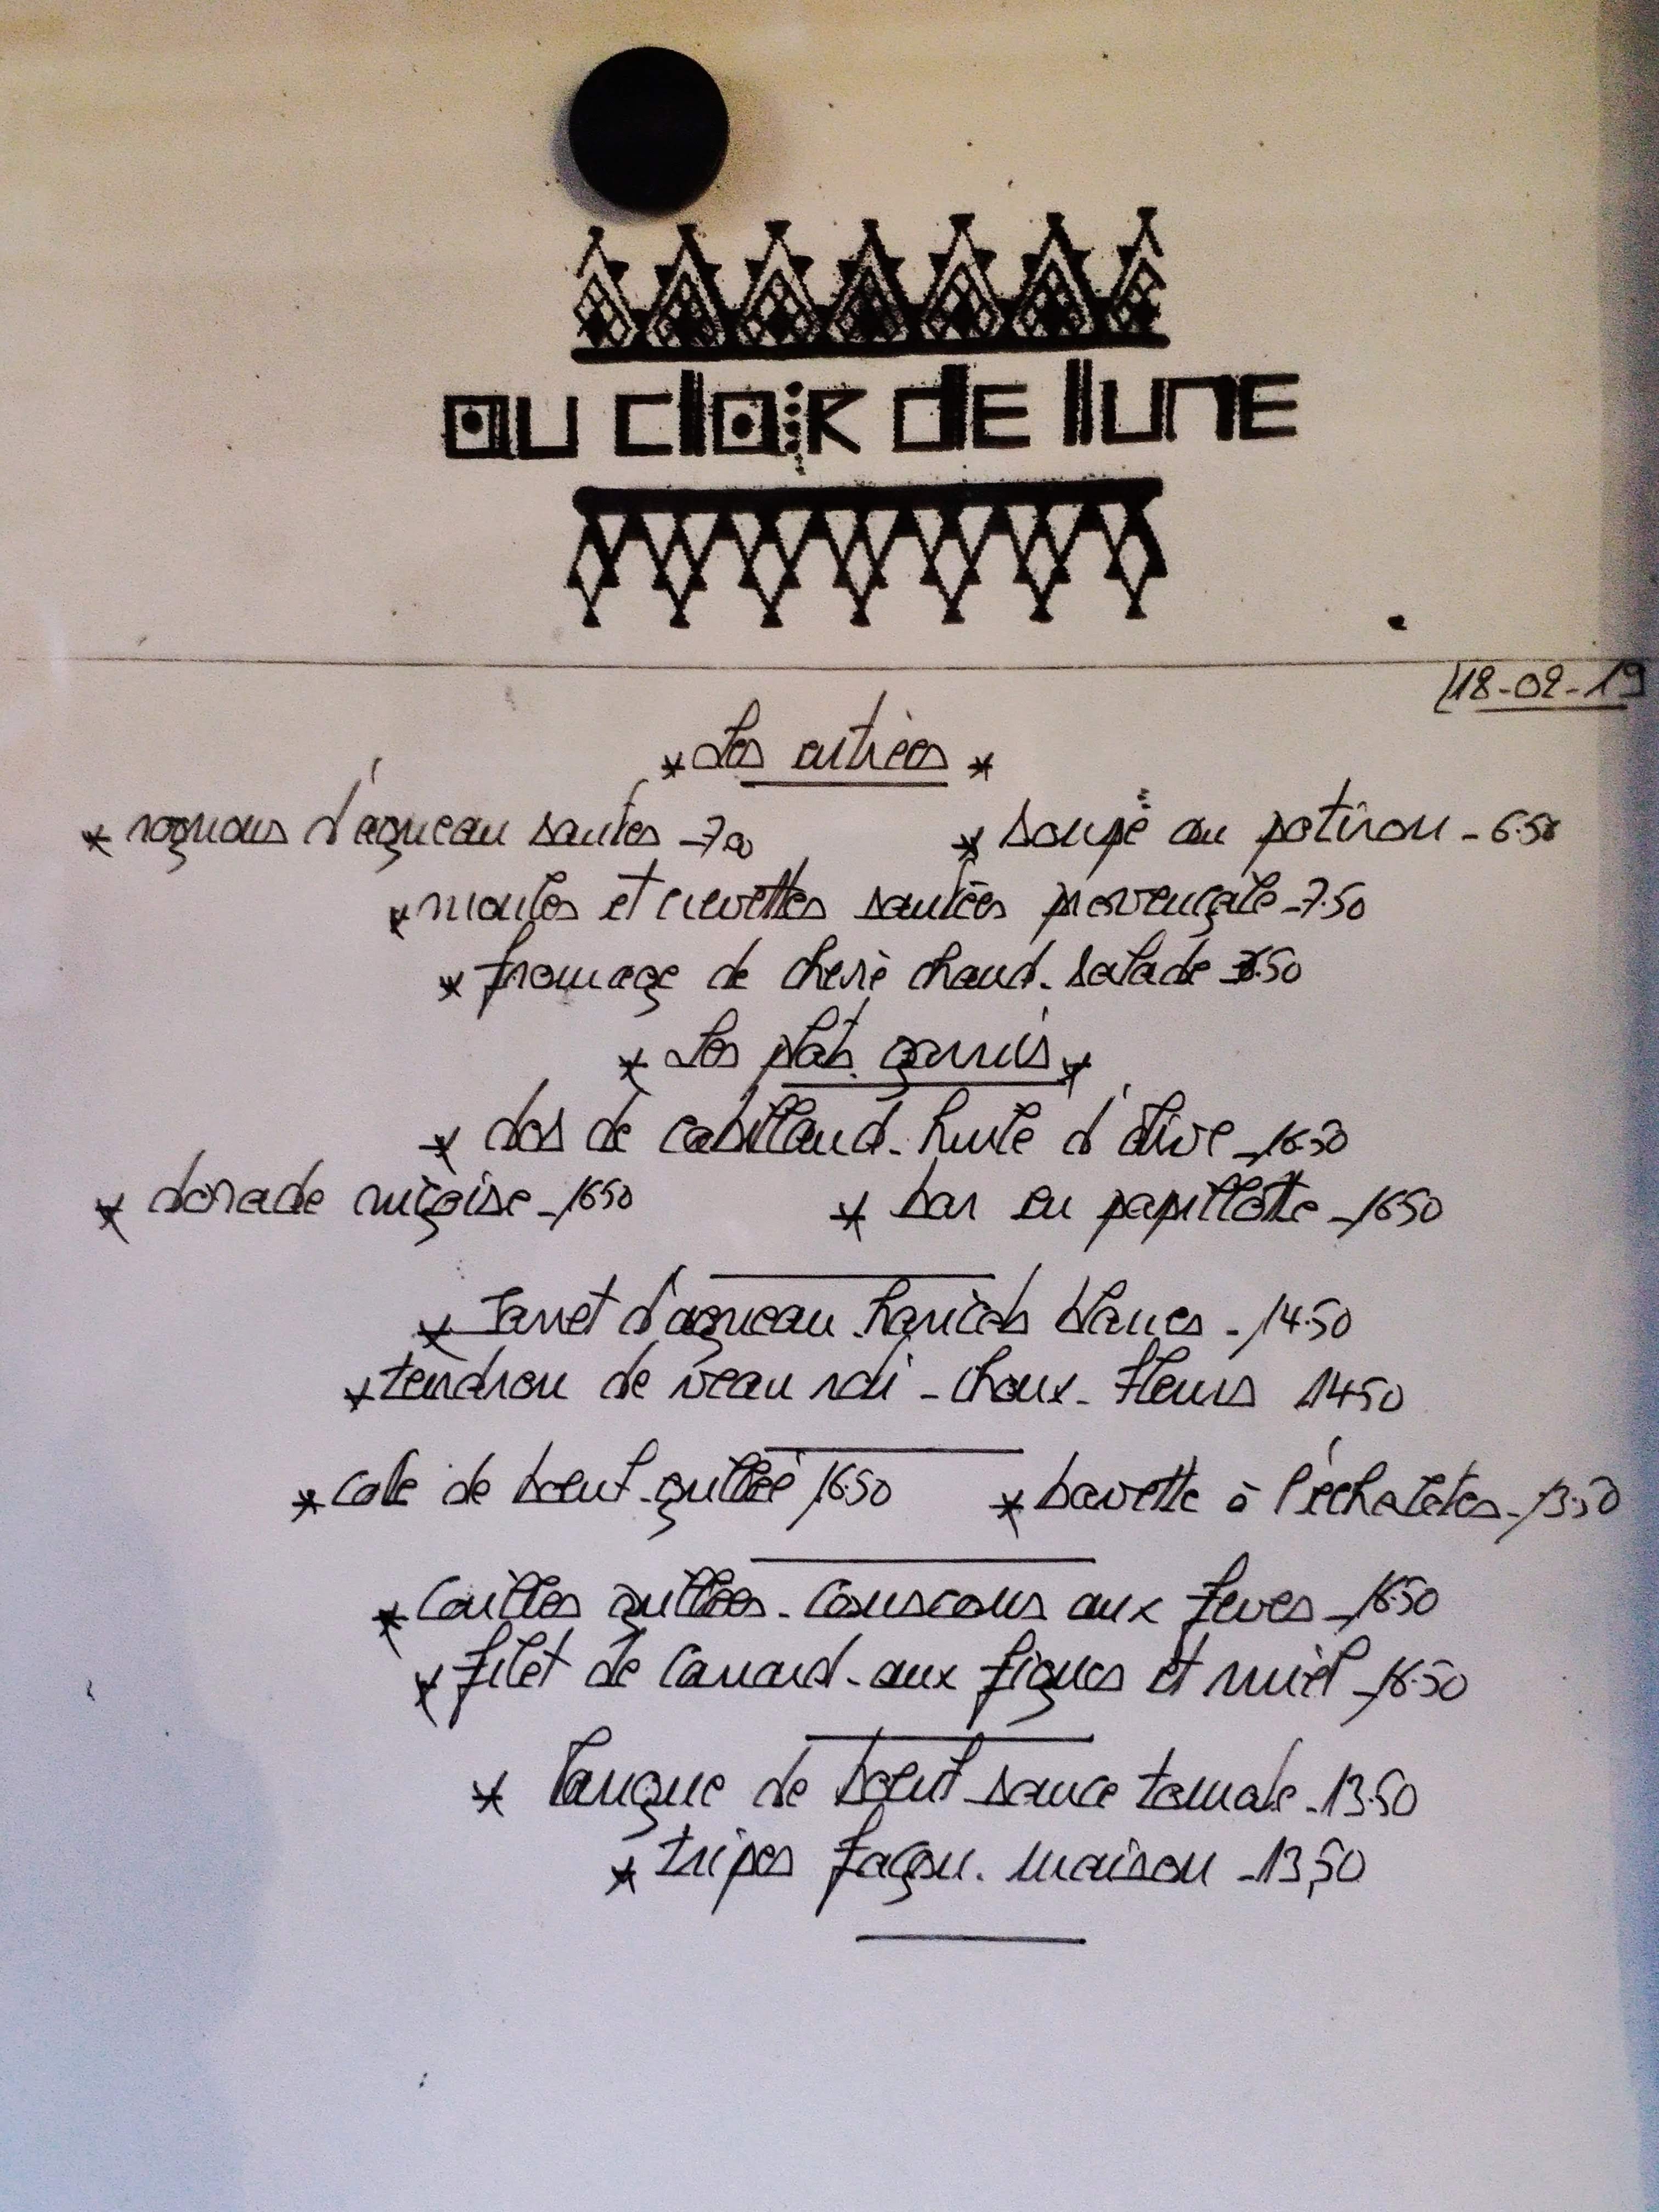 au clair de lune
18-02-19
* Les entrées *
* rognons d'agneau sautés - 7.00 * soupe au potiron - 6.50
* moules et crevettes sautées provençale - 7.50
* fromage de chevre chaud - salade
* Les plats garnis *
* dos de cabillaud - huile d'olive - 16.50
* dorade niçoise - 16.50 * bar en papillotte - 16.50
* Jarret d'agneau - haricots blancs - 14.50
* tendron de veau roti - choux - fleurs 14.50
* cote de boeuf - grillée 16.50 * bavette à l'échalotes - 13.50
* Cailles grillées - couscous aux feves - 16.50
* filet de Canard - aux figues et miel - 16.50
* langue de boeuf sauce tomate - 13.50
* tripes façon - maison - 13,50